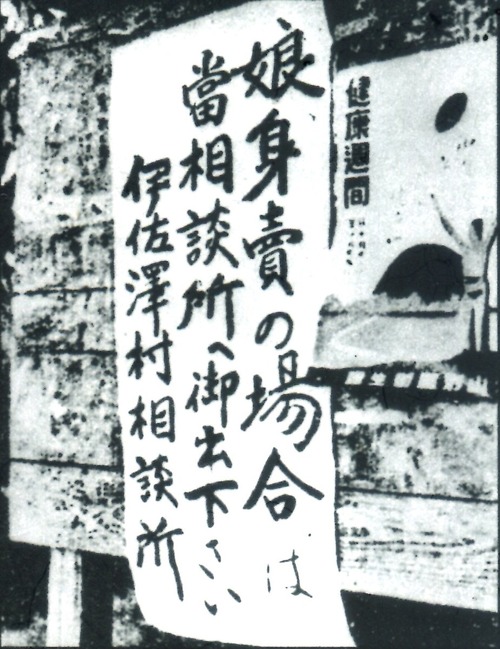 健康週間
娘身賣の場合は
當相談所へ御出下さい
伊佐澤村相談所